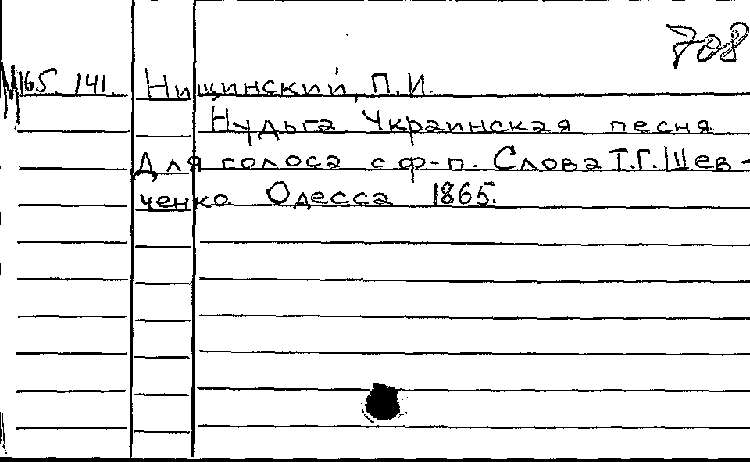 708
М165. 141. Нищинский, П.И.
Нудьга Украинская песня
Для голоса с ф-п. Слова Т.Г. Шев-
ченко Одесса 1865.